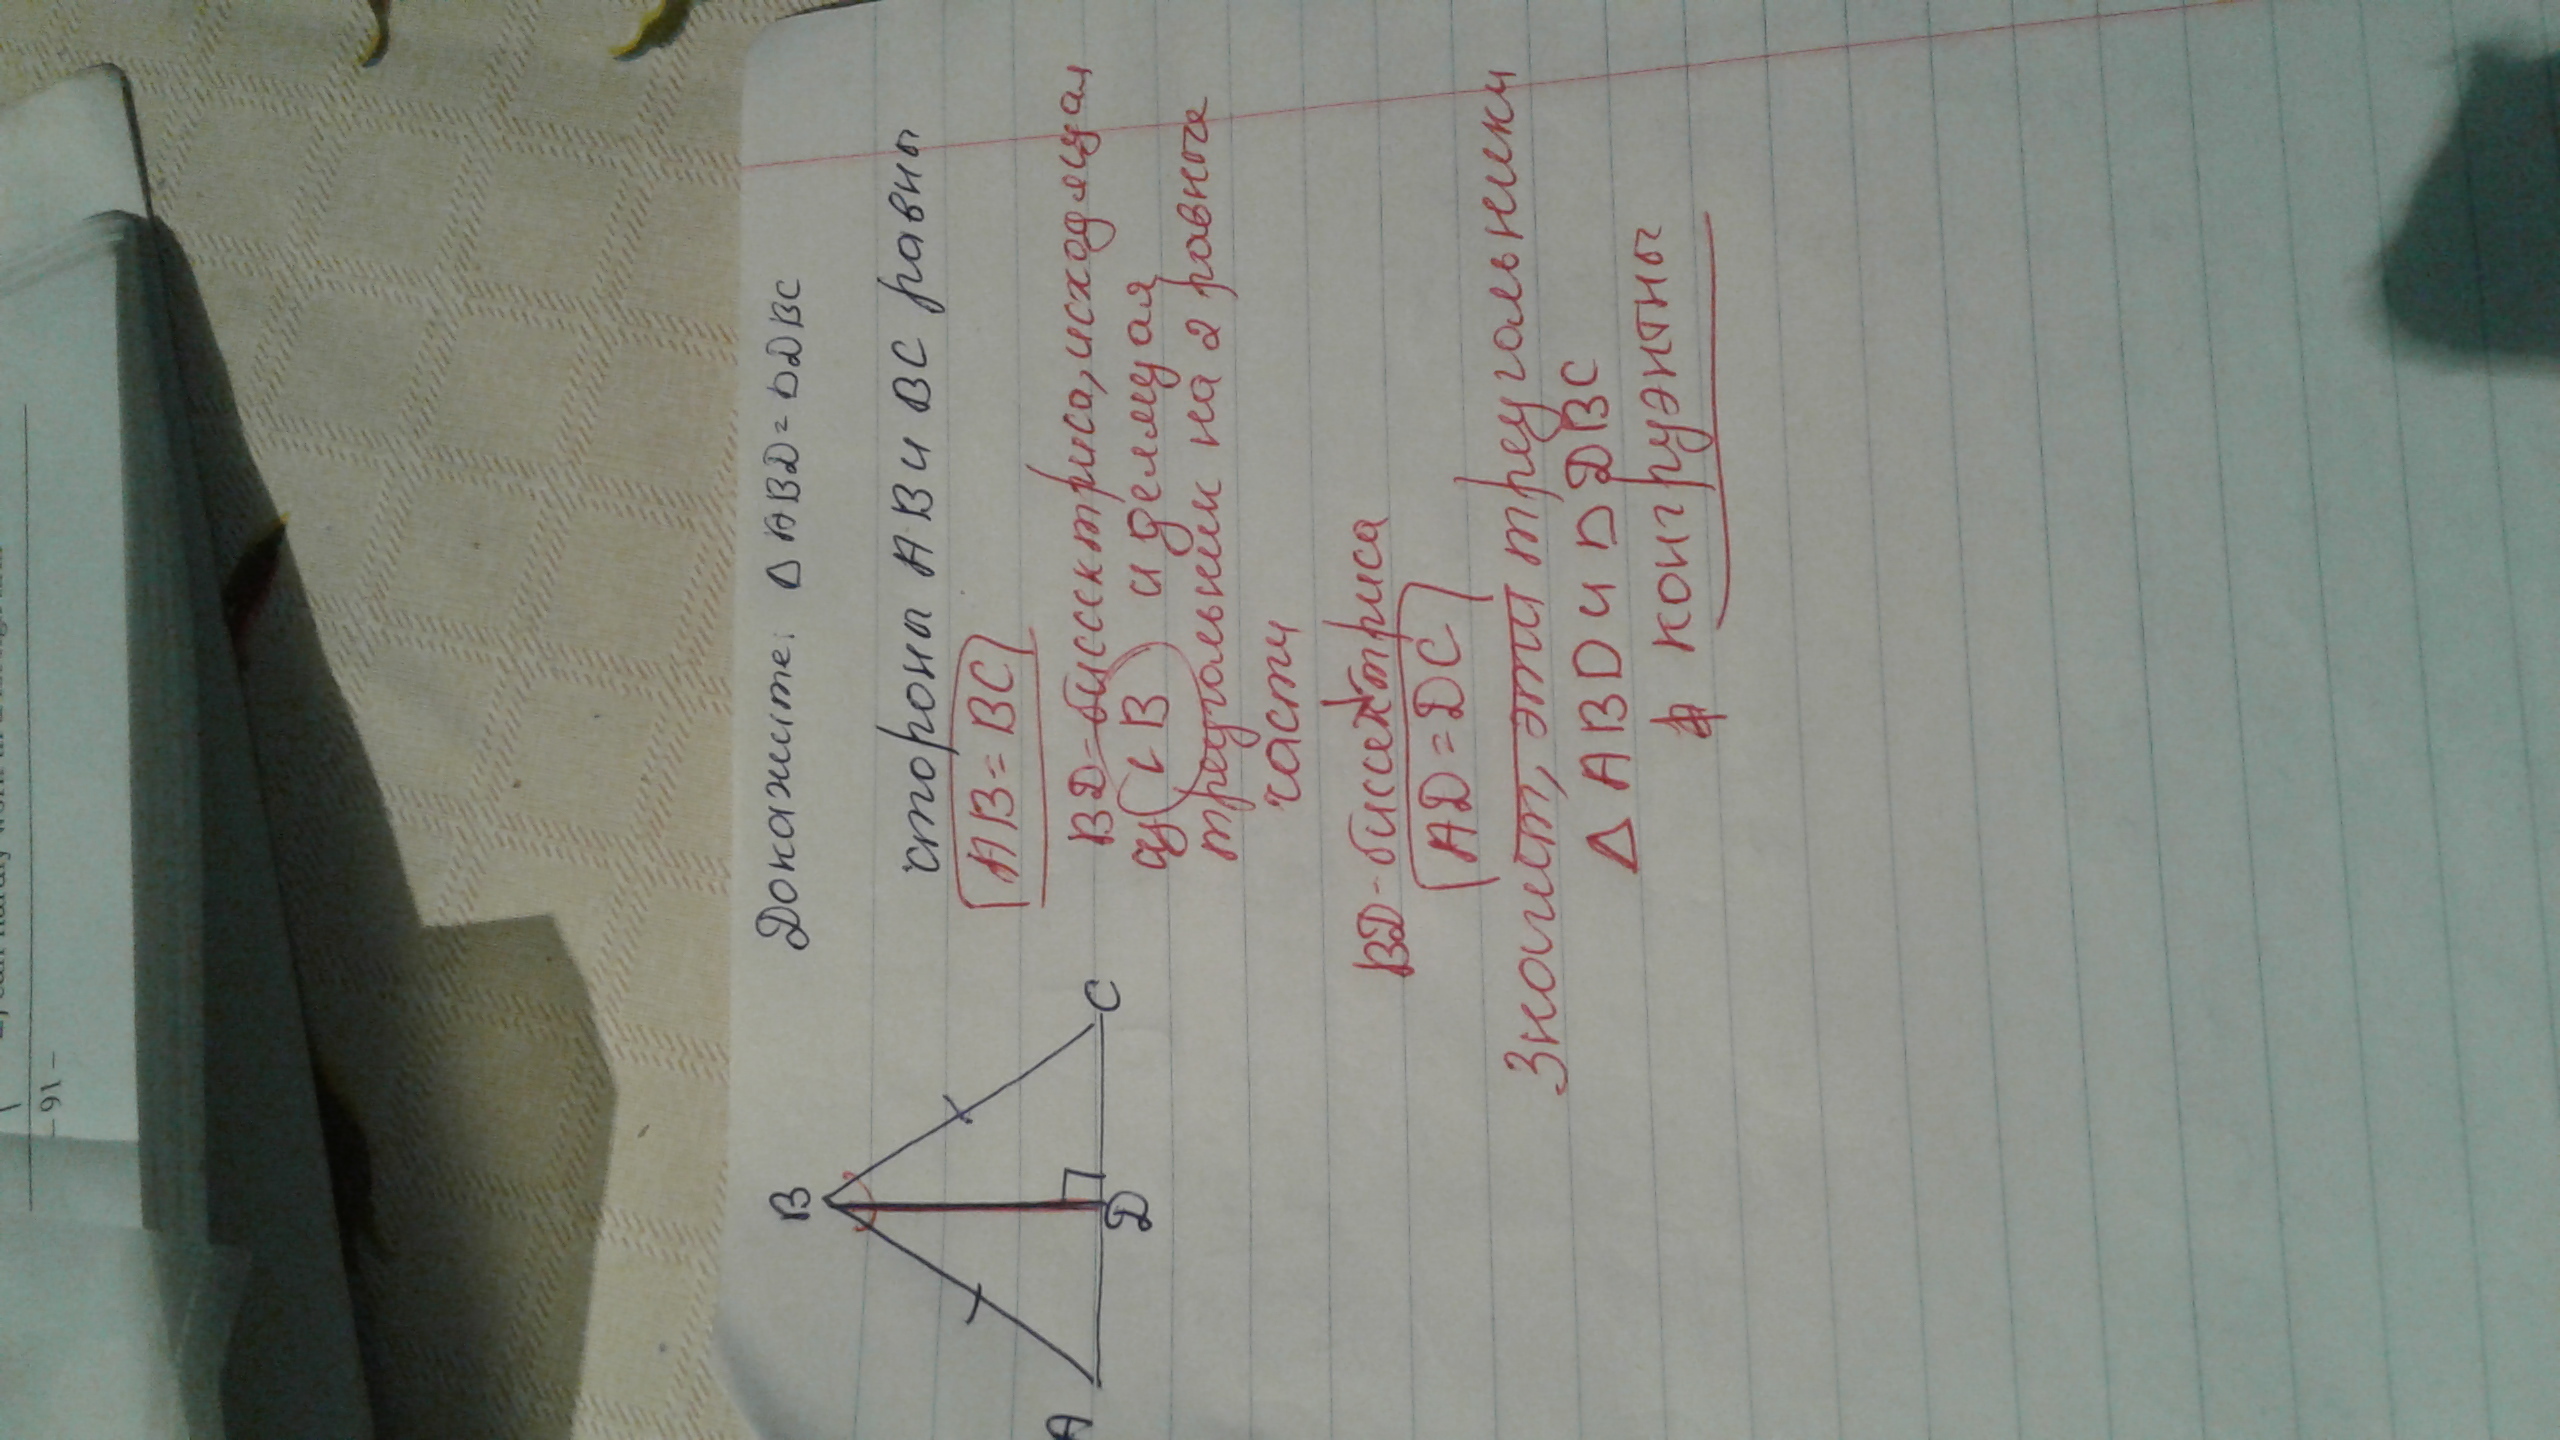 Докажите: △ ABD = △DBC
B
A
D
C
стороны AB и BC равны
AB = BC
BD - биссектриса, исходящая
из ∠B и делящая
треугольник на 2 равные
части
BD - биссектриса
AD = DC
Значит, эти треугольники
△ ABD и △ DBC
конгруэнтны
- 91 -